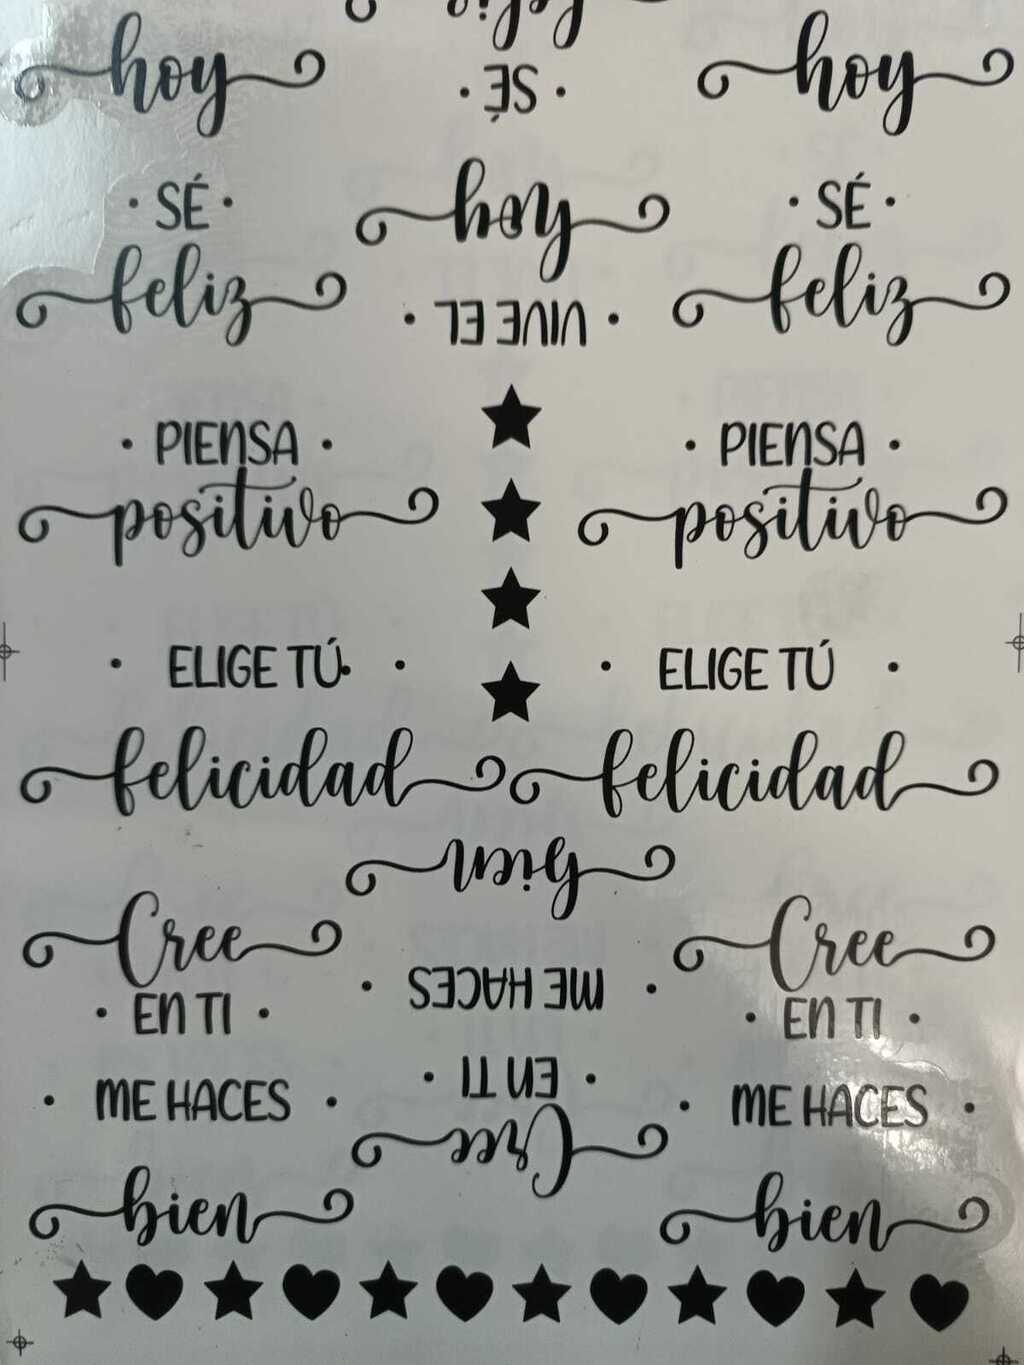 feliz
hoy
· SÉ ·
hoy
· SÉ ·
hoy
· SÉ ·
feliz
feliz
· VIVE EL ·
· PIENSA ·
positivo
· PIENSA ·
positivo
· ELIGE TÚ ·
felicidad
· ELIGE TÚ ·
felicidad
bien
· ME HACES ·
Cree
· EN TI ·
Cree
· EN TI ·
· EN TI ·
Cree
· ME HACES ·
bien
· ME HACES ·
bien